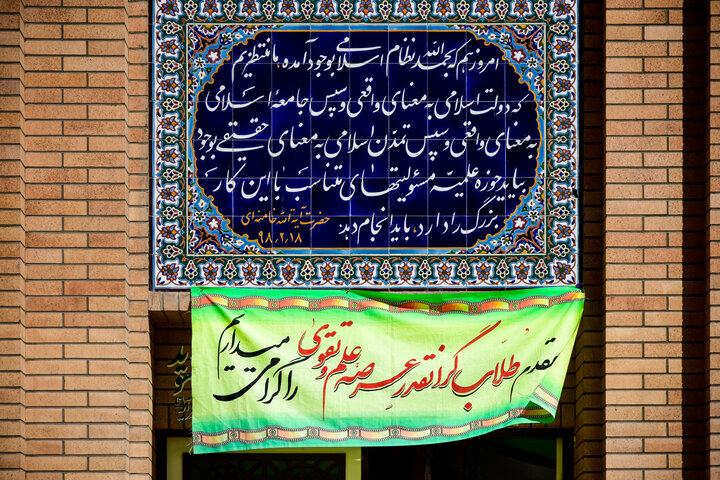 امروز هم که بحمدالله نظام اسلامی بوجود آمده، ما منتظریم
که دولت اسلامی به معنای واقعی و سپس جامعه اسلامی
به معنای واقعی و سپس تمدن اسلامی به معنای حقیقی بوجود
بیاید حوزه علمیه مسئولیتهای متناسب با این کار
بزرگ را دارد، باید انجام دهد.
حضرت آیة الله خامنه ای
۹۸٫۲٫۱۸
مقدم طلاب گرانقدر عرصه علم و تقوی
را گرامی میداریم